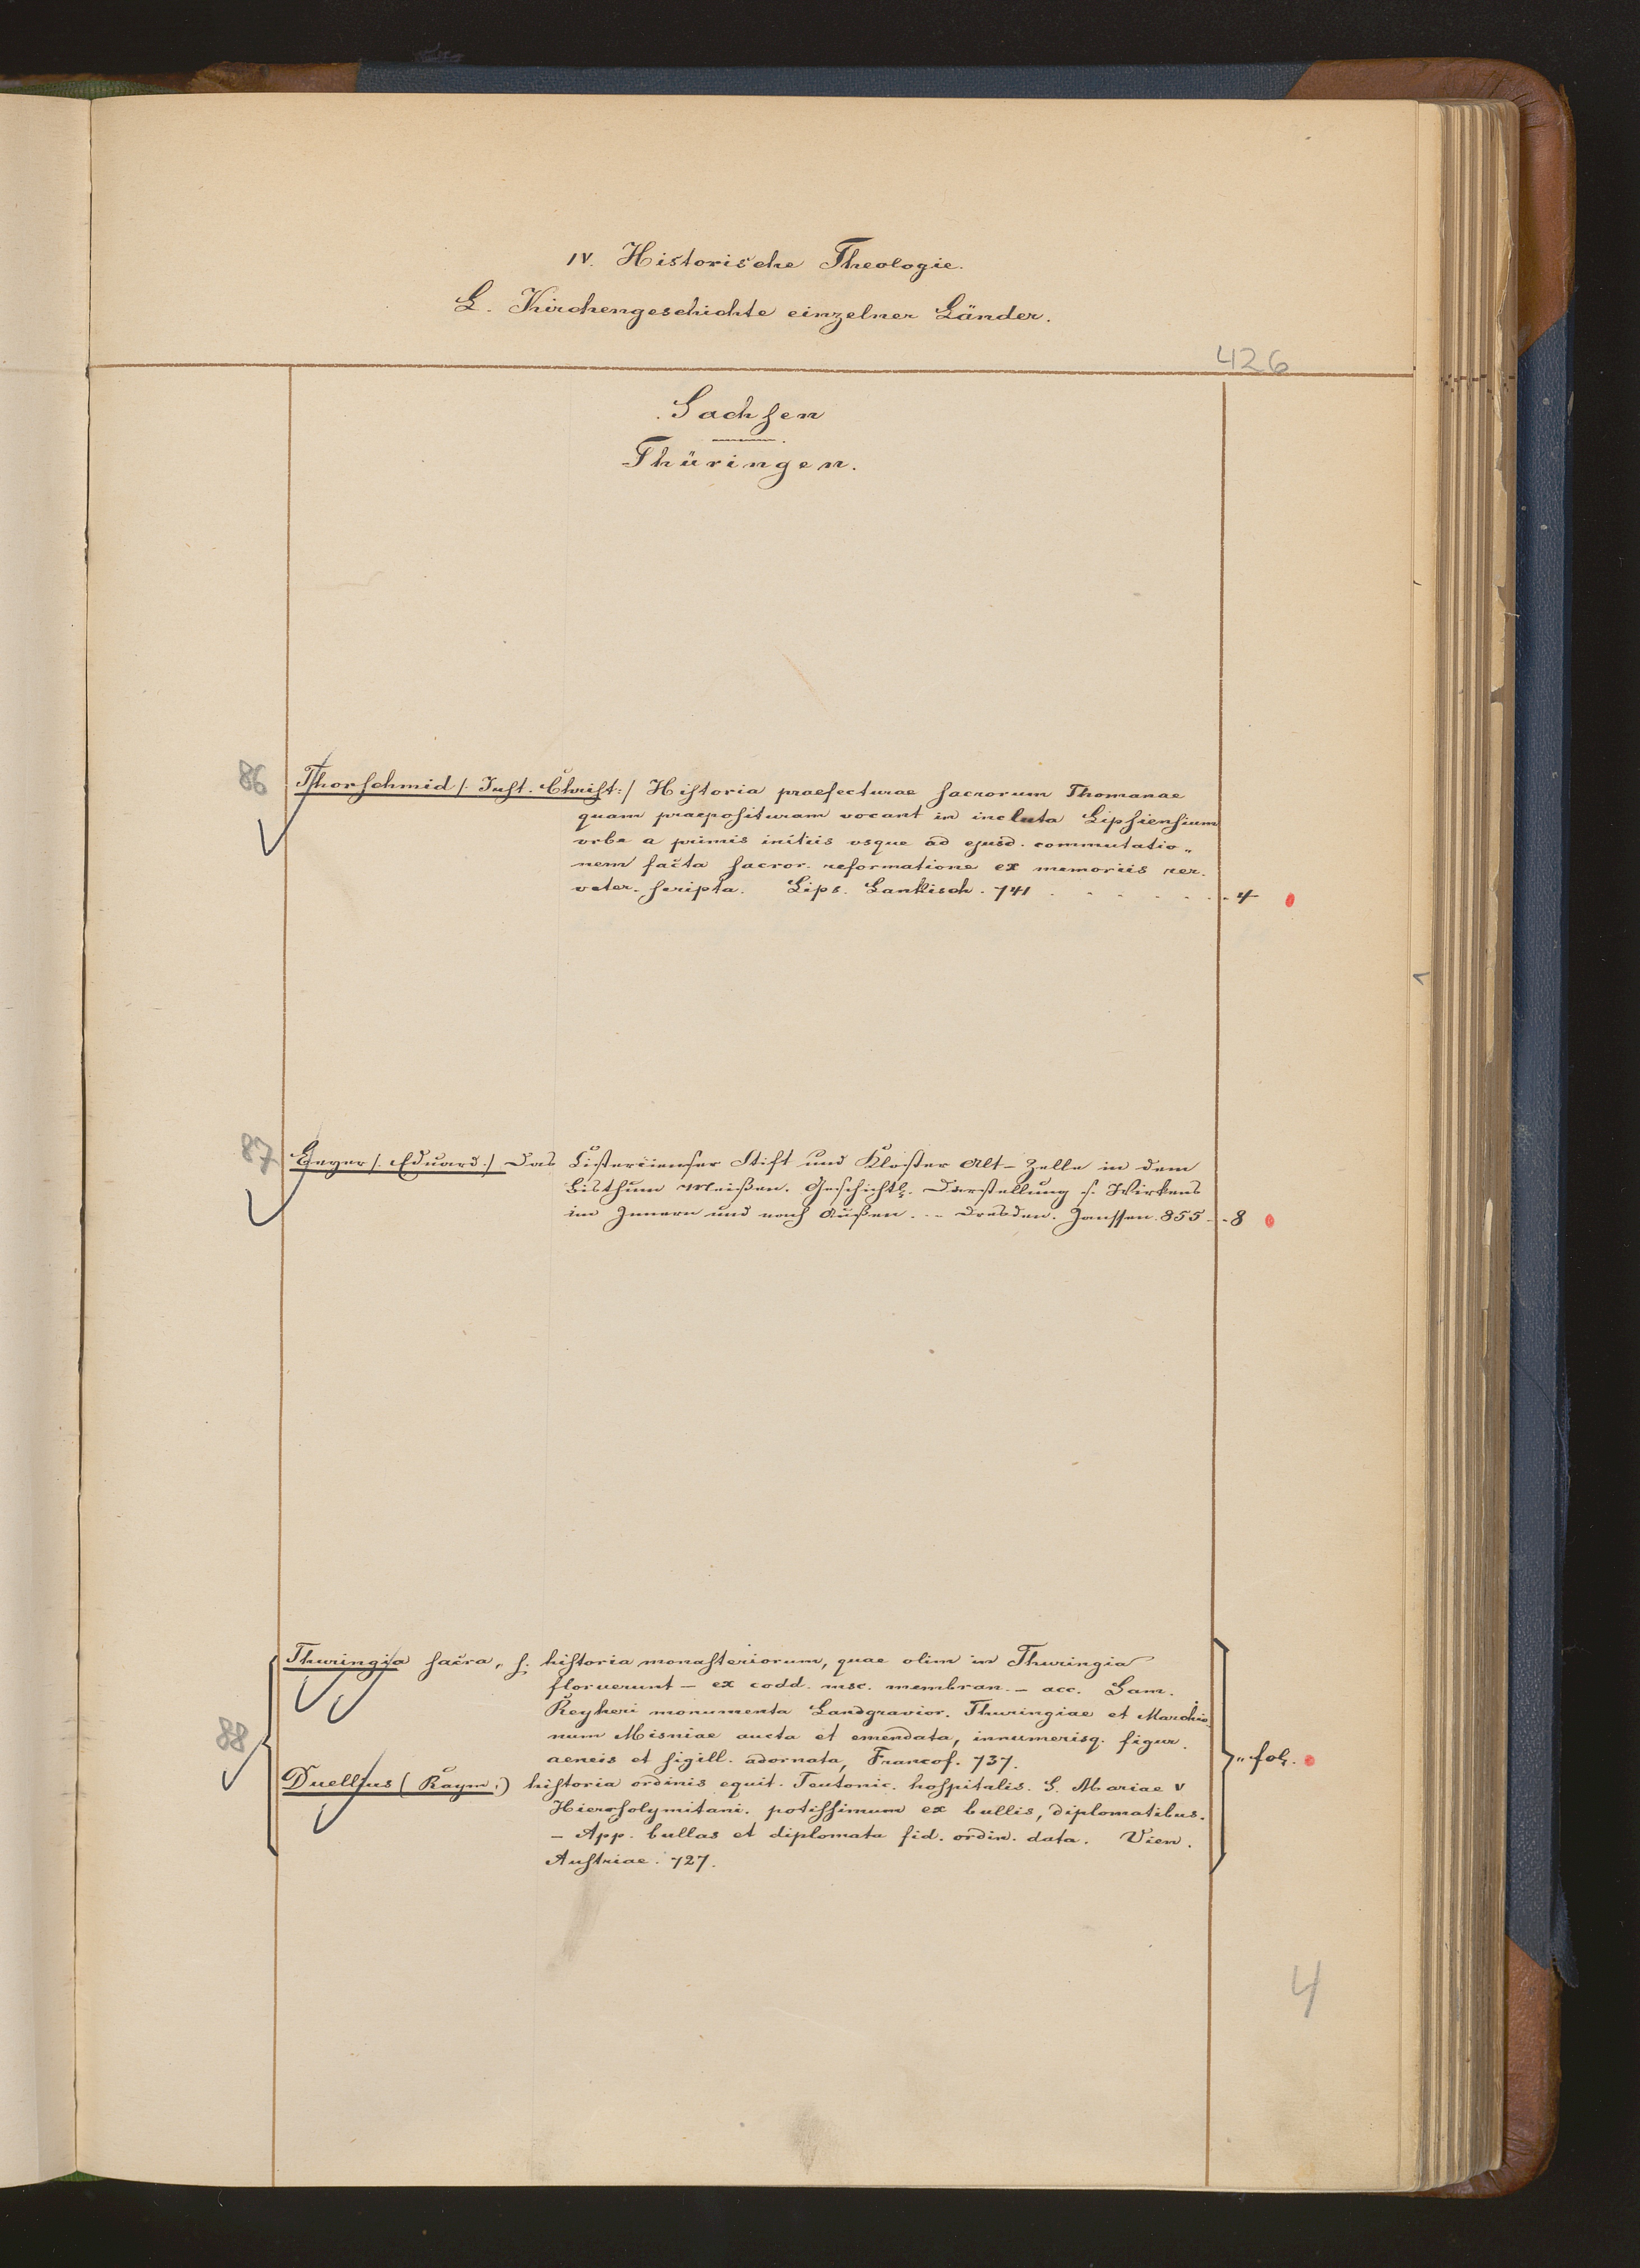 IV. Historische Theologie.
L. Kirchengeschichte einzelner Länder.
426
Sachsen
Thüringen.
86 Thorschmid /: Just. Christ:/ Historia praefecturae sacrorum Thomanae
quam praeposituram vocant in incluta Lipsiensium
urbe a primis initiis usque ad ejusd. commutatio„
nem facta sacror. reformatione ex memoriis rer.
veter. scripta. Lips. Lankisch. 741 . . . . . . 4
87 Beyer /: Eduard:/ Das Cistercienser Stift und Kloster Alt-Zelle in dem
Bisthum Meißen. Geschichtl. Darstellung s. Wirkens
im Innern und nach Außen. – Dresden. Janssen. 855 - - 8
Thuringia sacra, s. historia monasteriorum, quae olim in Thuringia
floruerunt – ex codd. msc. membran. – acc. Sam.
Reyheri monumenta Landgravior. Thuringiae et Marchio
88 num Misniae aucta et emendata, innumerisq. figur.
aeneis et sigill. adornata, Francof. 737. „ fol.
Duellius (Raym:) historia ordinis equit. Teutonic. hospitalis. S. Mariae V
Hierosolymitani. potissimum ex bullis, diplomatibus.
– App. bullas et diplomata fid. ordin. data. Vien.
Austriae. 727.
4